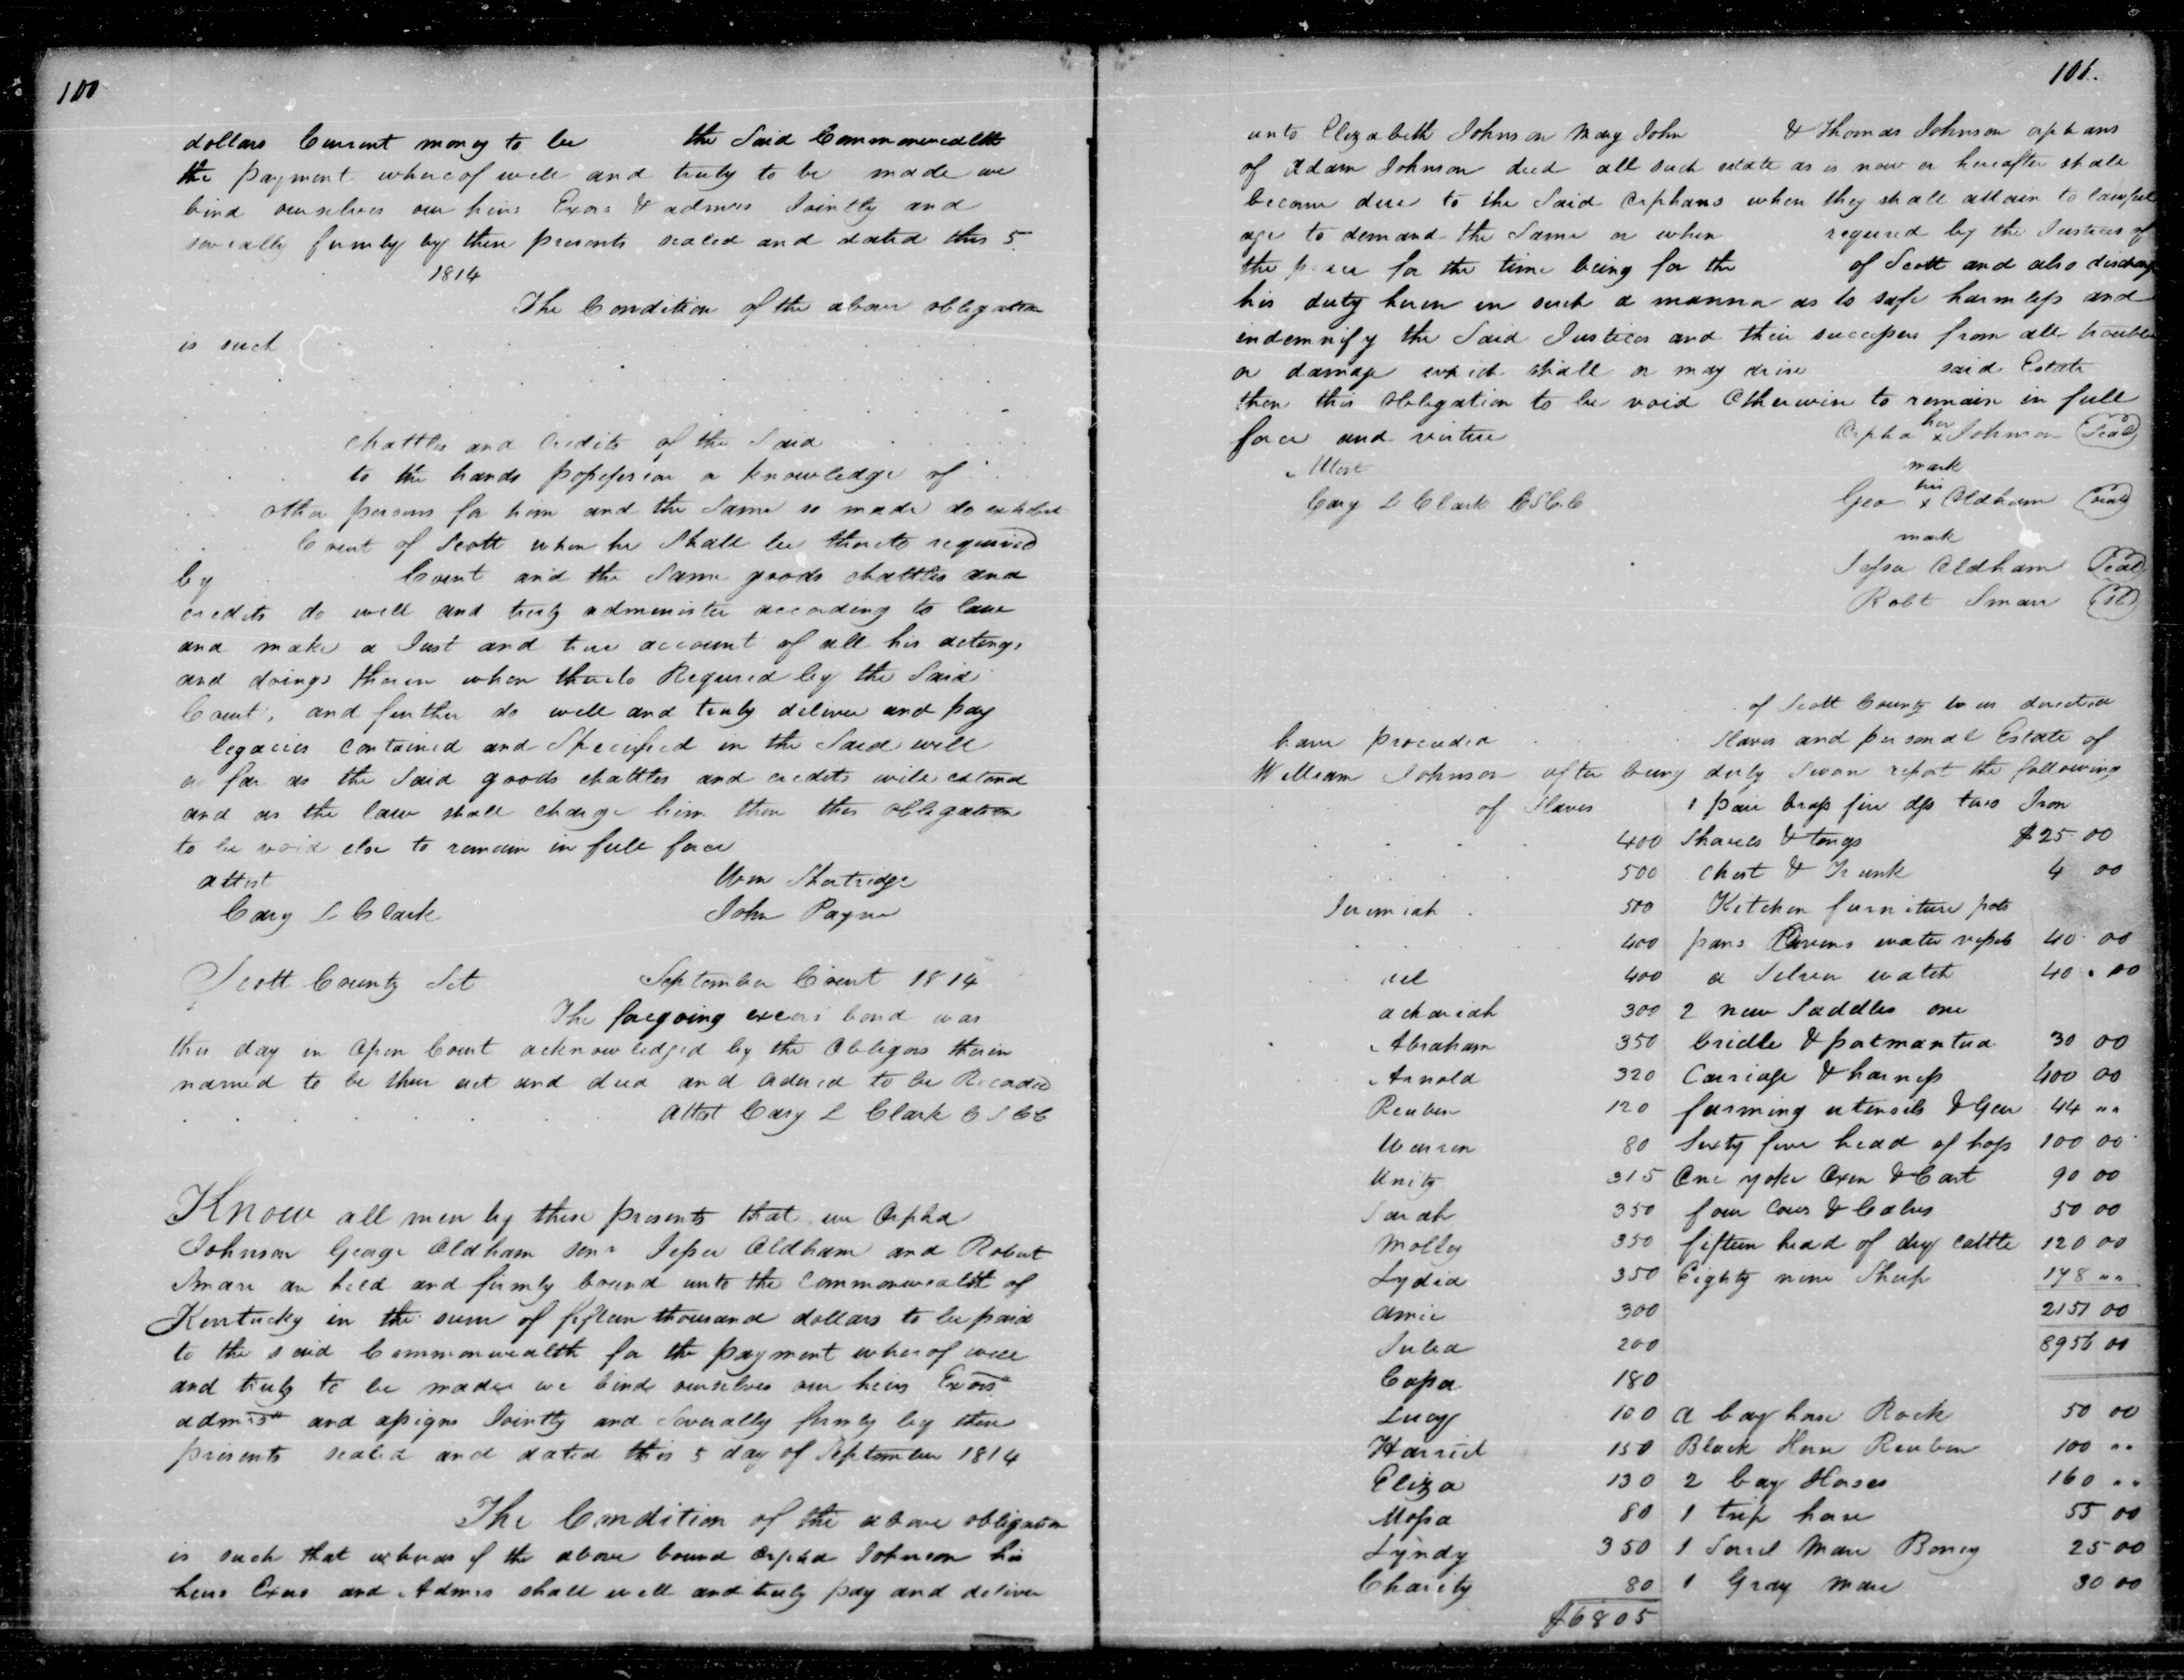 100
dollars Current money to be the Said Commonwealth
the payment whereof well and truly to be made we
bind ourselves our heirs Exors & admrs Jointly and
severally firmly by these presents sealed and dated this 5
1814
The Condition of the above obligation
is such
chattles and Credits of the Said
to the hands possession or knowledge of
other persons for him and the Same so made do exhibit
Court of Scott when he Shall be thereto required
by Court and the Same goods chattles and
credits do well and truly administer according to law
and make a Just and true account of all his actings
and doings therein when thereto Required by the Said
Court, and further do well and truly deliver and pay
legacies contained and Specified in the Said will
as far as the Said goods chattles and credits will extend
and as the law shall charge him then this obligation
to be void else to remain in full force
attest Wm Shortridge
Cary L Clark John Payne
Scott County Sct September Court 1814
The foregoing exors bond was
this day in Open Court acknowledged by the Obligors therein
named to be their act and deed and Ordered to be Recorded
attest Cary L Clark C S C C
Know all men by these presents that we Orpha
Johnson George Oldham senr Jesse Oldham and Robert
Smarr are held and firmly bound unto the Commonwealth of
Kentucky in the sum of fifteen thousand dollars to be paid
to the said Commonwealth for the payment whereof well
and truly to be made we bind ourselves our heirs Exors
admrs and assigns Jointly and Severally firmly by these
presents sealed and dated this 5 day of September 1814
The Condition of the above obligation
is such that whereas if the above bound Orpha Johnson his
heirs Exors and Admrs shall well and truly pay and deliver
101.
unto Elizabeth Johnson Mary John & Thomas Johnson orphans
of Adam Johnson decd all such estate as is now or hereafter shall
become due to the Said Orphans when they shall attain to lawful
age to demand the Same or when required by the Justices of
the peace for the time being for the of Scott and also discharge
his duty herein in such a manner as to safe harmless and
indemnify the Said Justices and their successors from all trouble
or damage which shall or may arise said Estate
then this Obligation to be void Otherwise to remain in full
force and virtue Orpha her x Johnson Seal
Attest mark
Cary L Clark CSCC Geo his x Oldham seal
mark
Jesse Oldham Seal
Robt Smarr
of Scott County to us directed
have proceeded Slaves and personal Estate of
William Johnson after being duly Sworn report the following
of Slaves 1 pair brass fire dgs two Iron
400 Shovels & tongs $25 00
500 chest & Trunk 4 00
Jeremiah 500 Kitchen furniture pots
400 pans Ovens water vessels 40 00
ael 400 a Silver watch 40 . 00
achariah 300 2 new Saddles one
Abraham 350 bridle & potmantua 30 00
Arnold 320 Carriage & harness 400 00
Reuben 120 farming utensils & Gear 44 "
Warren 80 Sixty five head of hogs 100 00
Unity 315 One yoke Oxen & Cart 90 00
Sarah 350 four Cows & Calves 50 00
Molley 350 fifteen head of dry cattle 120 00
Lydia 350 Eighty nine Sheep 178 "
Amie 300 2151 00
Julia 200 8956 00
Capa 180
Lucy 100 A bay horse Rock 50 00
Harriel 150 Black Horse Reuben 100 "
Eliza 130 2 bay Horses 160 "
Mosa 80 1 trip horse 55 00
Lyndy 350 1 Sorrel Mare Boney 25 00
Charity 80 1 Gray Mare 30 00
$6805